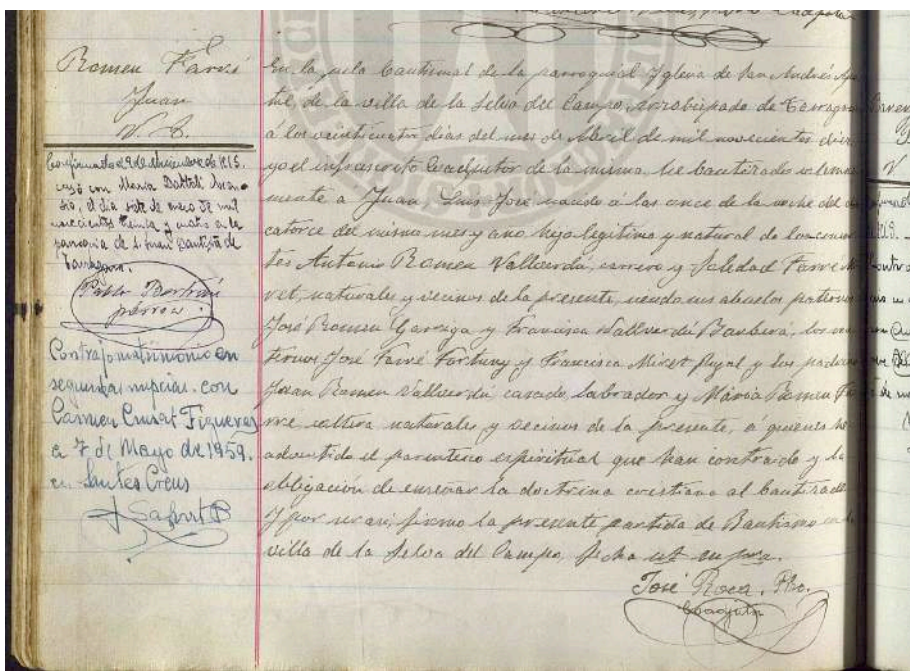 Romeu Farré
Juan
Confirmado
casó con María
sio, el dia siete de enero de mil
novecientos treinta y cuatro en la
parroquia de S. Juan Bautista de
Tarragona.
Pablo Bertrán
párroco.
Contrajo matrimonio en
segundas nupcias con
Carmen Cunat Figueras
a 7 de Mayo de 1959.
en Santes Creus
En la pila bautismal de la parroquial Iglesia de San Andrés Apó
tol, de la villa de la Selva del Campo, Arzobispado de Tarragona
á los veinticuatro dias del mes de Abril de mil novecientos diez
yo el infrascrito Coadjutor de la misma, he bautizado solemne
mente a Juan Luis José nacido á las once de la noche del dia
catorce del mismo mes y año, hijo legitimo y natural de los consor
tes Antonio Romeu Vallverdú, carrero y Soledad Farré Mi
ret, naturales y vecinos de la presente, siendo sus abuelos paternos
José Romeu Garriga y Francisca Vallverdú Barberá, los ma
ternos José Farré Fortuny y Francisca Miret Pujal y los padrinos
Juan Romeu Vallverdú casado, labrador y María Romeu Fa
rré soltera naturales y vecinos de la presente, a quienes he
advertido el parentesco espiritual que han contraido y la
obligación de enseñar la doctrina cristiana al bautizado
Y por ser asi, firmo la presente partida de Bautismo en la
villa de la Selva del Campo, fecha ut supra.
José Roca, Pbo.
Coadjutor